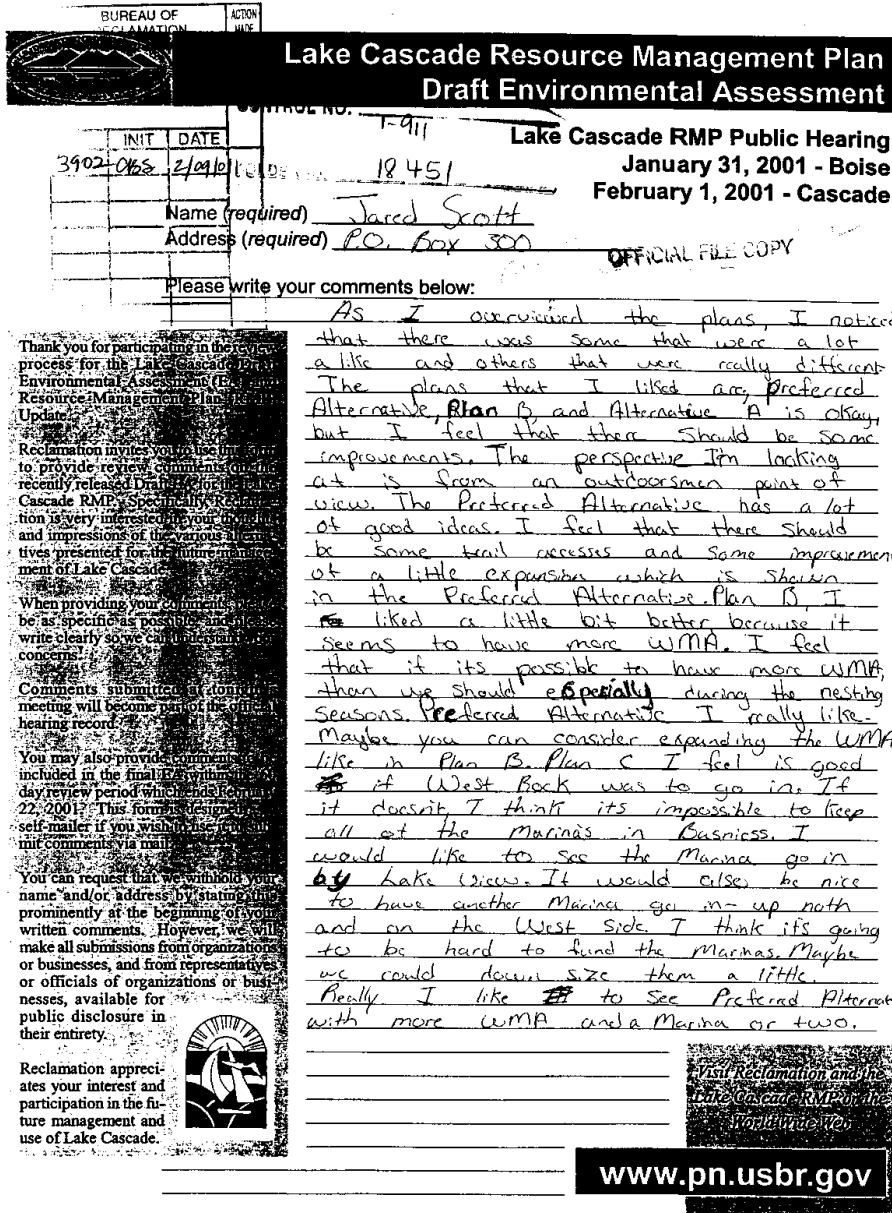 BUREAU OF
RECLAMATION
ACTION
MADE
Lake Cascade Resource Management Plan
Draft Environmental Assessment
CONTROL NO.
T-911
INIT DATE
3902
2/09/01
18451
Lake Cascade RMP Public Hearing
January 31, 2001 - Boise
February 1, 2001 - Cascade
Name (required) Jared Scott
Address (required) P.O. Box 300
OFFICIAL FILE COPY
Please write your comments below:
As I overviewed the plans, I noticed
that there was some that were a lot
a like and others that were really different
The plans that I liked are, preferred
Alternative, Plan B, and Alternative A is okay,
but I feel that there should be some
improvements. The perspective I'm looking
at is from an outdoorsmen point of
view. The Preferred Alternative has a lot
of good ideas. I feel that there should
be some trail accesses and some improvemen
of a little expansion which is shown
in the Preferred Alternative. Plan B, I
liked a little bit better because it
seems to have more WMA. I feel
that if its possible to have more WMA,
than we should especially during the nesting
seasons. Preferred Alternative I really like.
Maybe you can consider expanding the WMA
like in Plan B. Plan C I feel is good
if West Rock was to go in. If
it doesn't, I think its impossible to keep
all of the Marina's in Busniess. I
would like to see the Marina go in
by Lake View. It would also be nice
to have another Marina go in- up noth
and on the West Side. I think it's going
to be hard to fund the Marinas. Maybe
we could down size them a little.
Really I like to see Preferred Alternat
with more WMA and a Marina or two.
Thank you for participating in the review
process for the Lake Cascade Draft
Environmental Assessment (EA) and
Resource Management Plan (RMP)
Update.
Reclamation invites you to use this form
to provide review comments on the
recently released Draft EA for the Lake
Cascade RMP. Specifically, Reclama-
tion is very interested in your thoughts
and impressions of the various alterna-
tives presented for the future manage-
ment of Lake Cascade.
When providing your comments, please
be as specific as possible and please
write clearly so we can understand your
concerns!
Comments submitted at tonight's
meeting will become part of the official
hearing record.
You may also provide comments to be
included in the final EA within the
day review period which ends February
22, 2001. This form is designed as a
self-mailer if you wish to use it to sub-
mit comments via mail.
You can request that we withhold your
name and/or address by stating this
prominently at the beginning of your
written comments. However, we will
make all submissions from organizations
or businesses, and from representatives
or officials of organizations or busi-
nesses, available for
public disclosure in
their entirety.
Reclamation appreci-
ates your interest and
participation in the fu-
ture management and
use of Lake Cascade.
Visit Reclamation and the
Lake Cascade RMP on the
World Wide Web
www.pn.usbr.gov